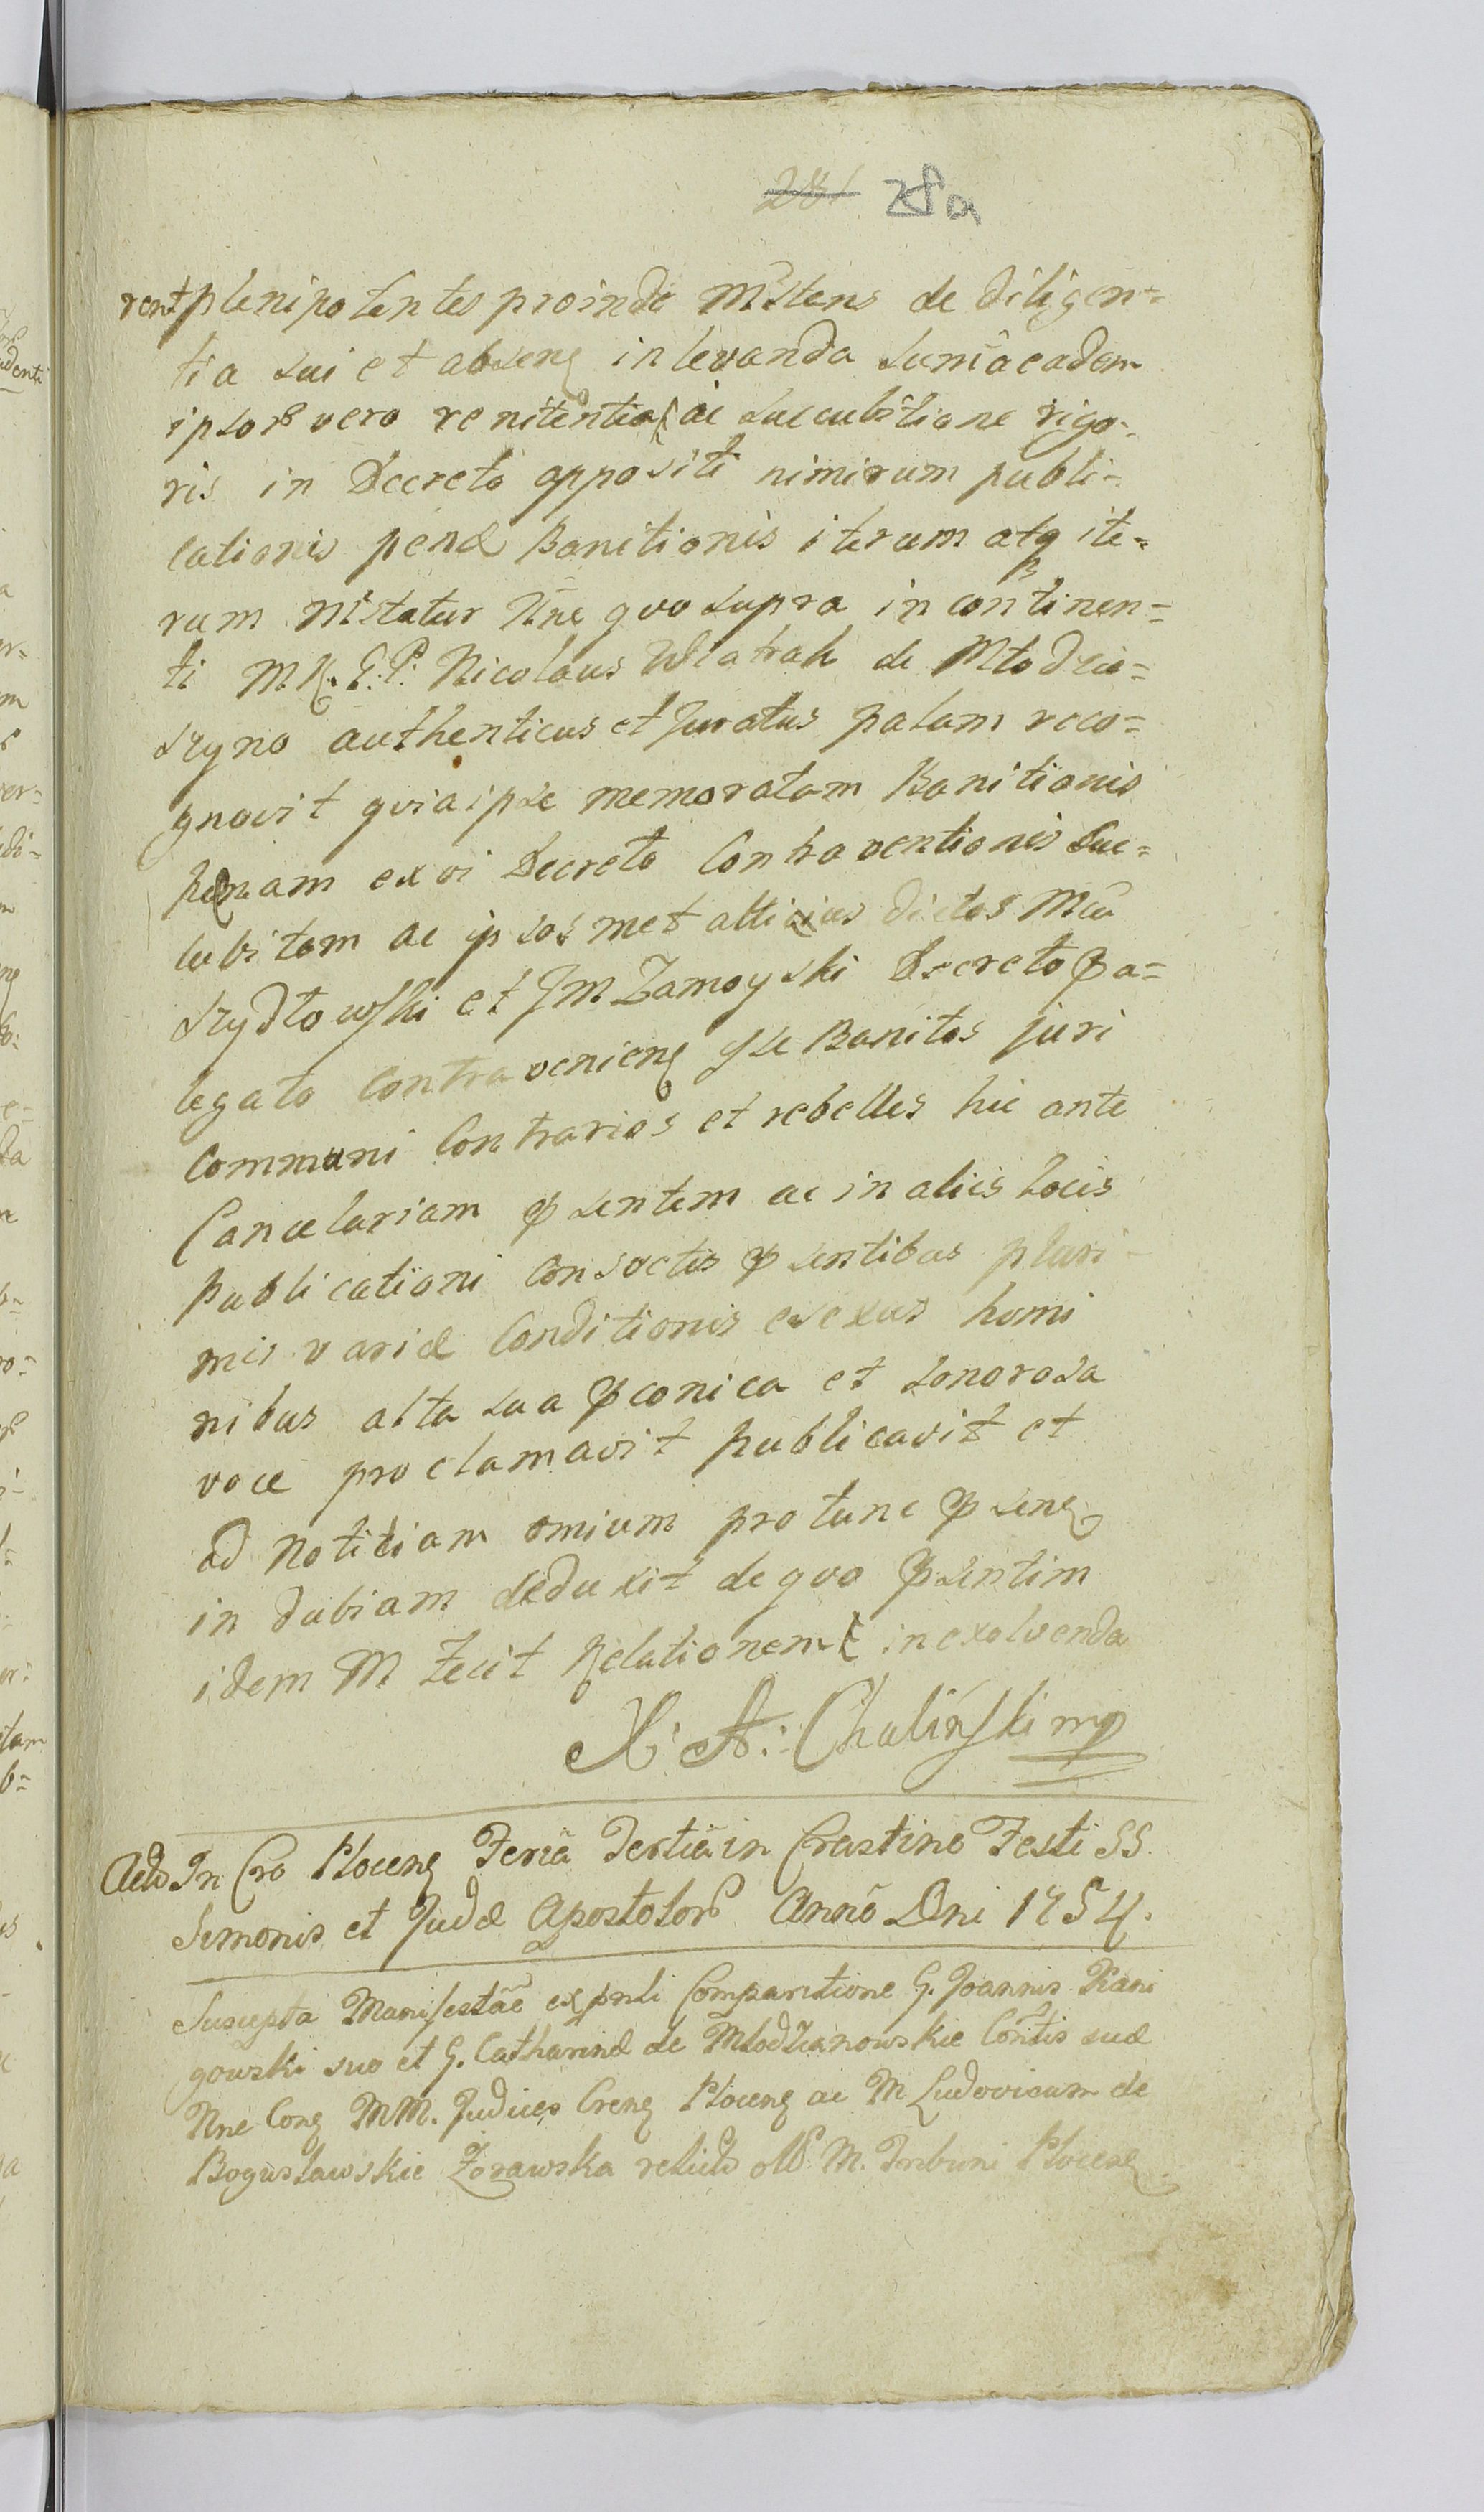 281 28a
rent plenipotentes proinde Mstens de diligen=
tia sui et absens in levanda sumã eadem
ipsor vero renitentia ac succubitione rigo=
ris in Decreto appositi nimirum publi=
cationis penæ Banitionis iterum atq ite=
rum Mstatur Nne quo supra in continen=
ti M R. G. P. Nicolaus Wiatrak de Młodzia=
szyno authenticus et Juratus palam reco=
gnovit quia ipse memoratam Banitionis
penam ex vi Decreto Contraventionis Suc=
cubitam ac ipsosmet dictos M
Szydłowski et JM Zamoyski Decreto Præa=
legato Contraveniens Banitos juri
Communi Contrarios et rebelles hic ante
Cancelariam psentem ac in aliis Locis
publicationi Consvetis psentibus pluri
mis variæ Conditionis et sexus homi
nibus alta sua pconica et sonorosa
voce proclamavit publicavit et
ad Notitiam omium pro tunc psens
in dubiam deduxit de quo psentim
idem M fecit Relationem in exolvenda
A: Chaliński mp
Actũ In Cro Plocens Feriã Tertiã in Crastino Festi SS.
Simonis et Judæ Apostolor Annõ Dni 1754.
Suscepta Manifestãe ex pnli Comparitione G. Joannis Piani
gowski suo et G. Catharinæ de Młodzianowskie Contis suæ
Nne Cons MM. Judices Crens Plocens ac M Ludovicam de
Bogusławskie Żorawska relictã M. Tribuni Plocens